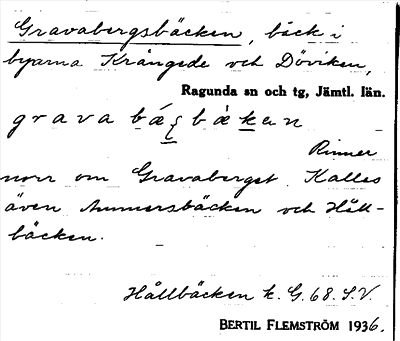 Gravabergsbäcken, bäck i
byarna Krångede och Döviken,
Ragunda sn och tg, Jämtl. län.
Rinner
norr om Gravaberget. Kallas
även Ammersbäcken och Håll-
bäcken.
Hållbäcken k. G. 68. S.V.
BERTIL FLEMSTRÖM 1936.